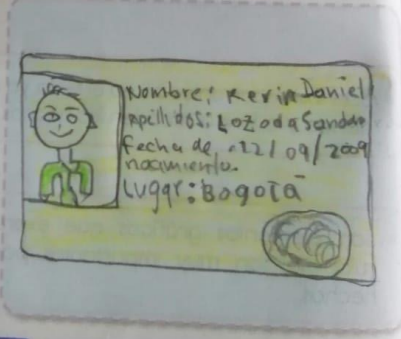 Nombre: Kevin Daniel
Apillidos: Lozoda Sandov
fecha de 12/09/2009
nacimiento.
Lugar: Bogotá